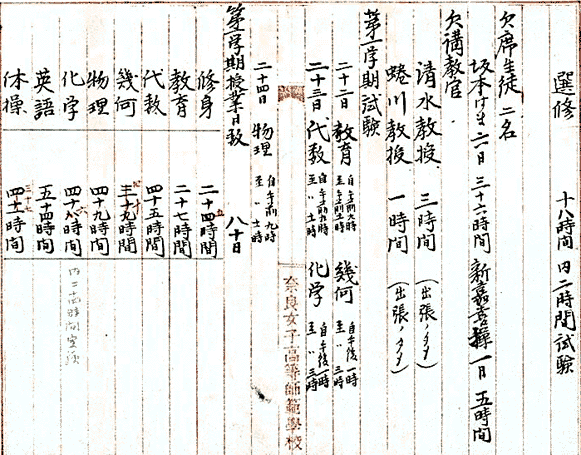 選修 十八時間 内二時間試験
欠席生徒 二名
坂本けま 六日 三十六時間 新嘉喜操 一日 五時間
欠講教官
清水教授 三時間 (出張ノタメ)
蜷川教授 一時間 (出張ノタメ)
第一学期試験
二十二日 教育 自午前九時 至〃十時 幾何 自午後一時 至〃三時
二十三日 代数 自午前九時 至〃十一時 化学 自午後一時 至〃三時
奈良女子高等師範學校
二十四日 物理 自午前九時 至〃十一時
第一学期授業日数 八十日
修身 二十四時間
教育 二十七時間
代数 四十五時間
幾何 三十九時間
物理 四十九時間
化学 四十八時間 内二十四時間実験
英語 五十四時間
体操 時間